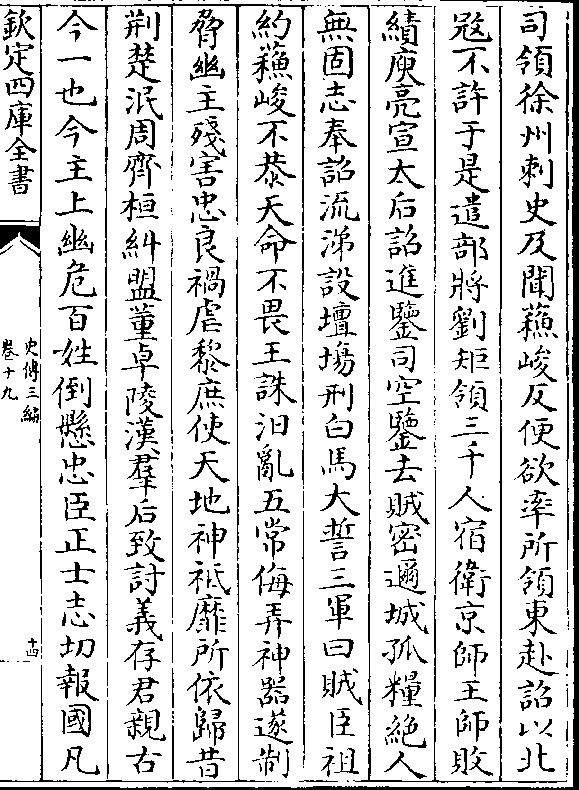 司領徐州刺史及聞蘓峻反便欲率所領東赴詔以北
宼不許于是遣部將劉矩領三千人宿衛京師王師敗
績庾亮宣太后詔進鑒司空鑒去賊宻邇城孤糧絶人
無固志奉詔流涕設壇塲刑白馬大誓三軍曰賊臣祖
約蘓峻不恭天命不畏王誅汨亂五常侮弄神器遂制
脅幽主殘害忠良禍虐黎庶使天地神祗靡所依歸昔
荆楚泯周齊桓糾盟董卓陵漢羣后致討義存君親古
今一也今主上幽危百姓倒懸忠臣正士志切報國凡
欽定四庫全書
史傳三編
卷十九
十四